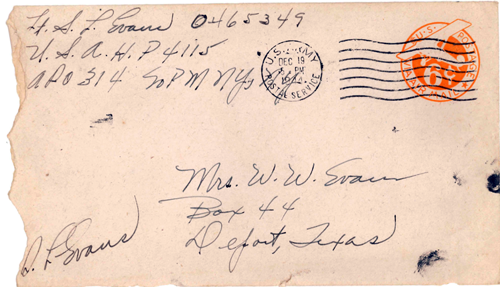 Lt. S L Evans 0465349
U.S.A.H.P 4115
APO 314 % PM NY, NY
U.S. ARMY
DEC 19
PM
POSTAL SERVICE
U.S. POSTAGE
VIA AIR MAIL
6¢
Mrs. W. W. Evans
Box 44
Deport, Texas
S L Evans